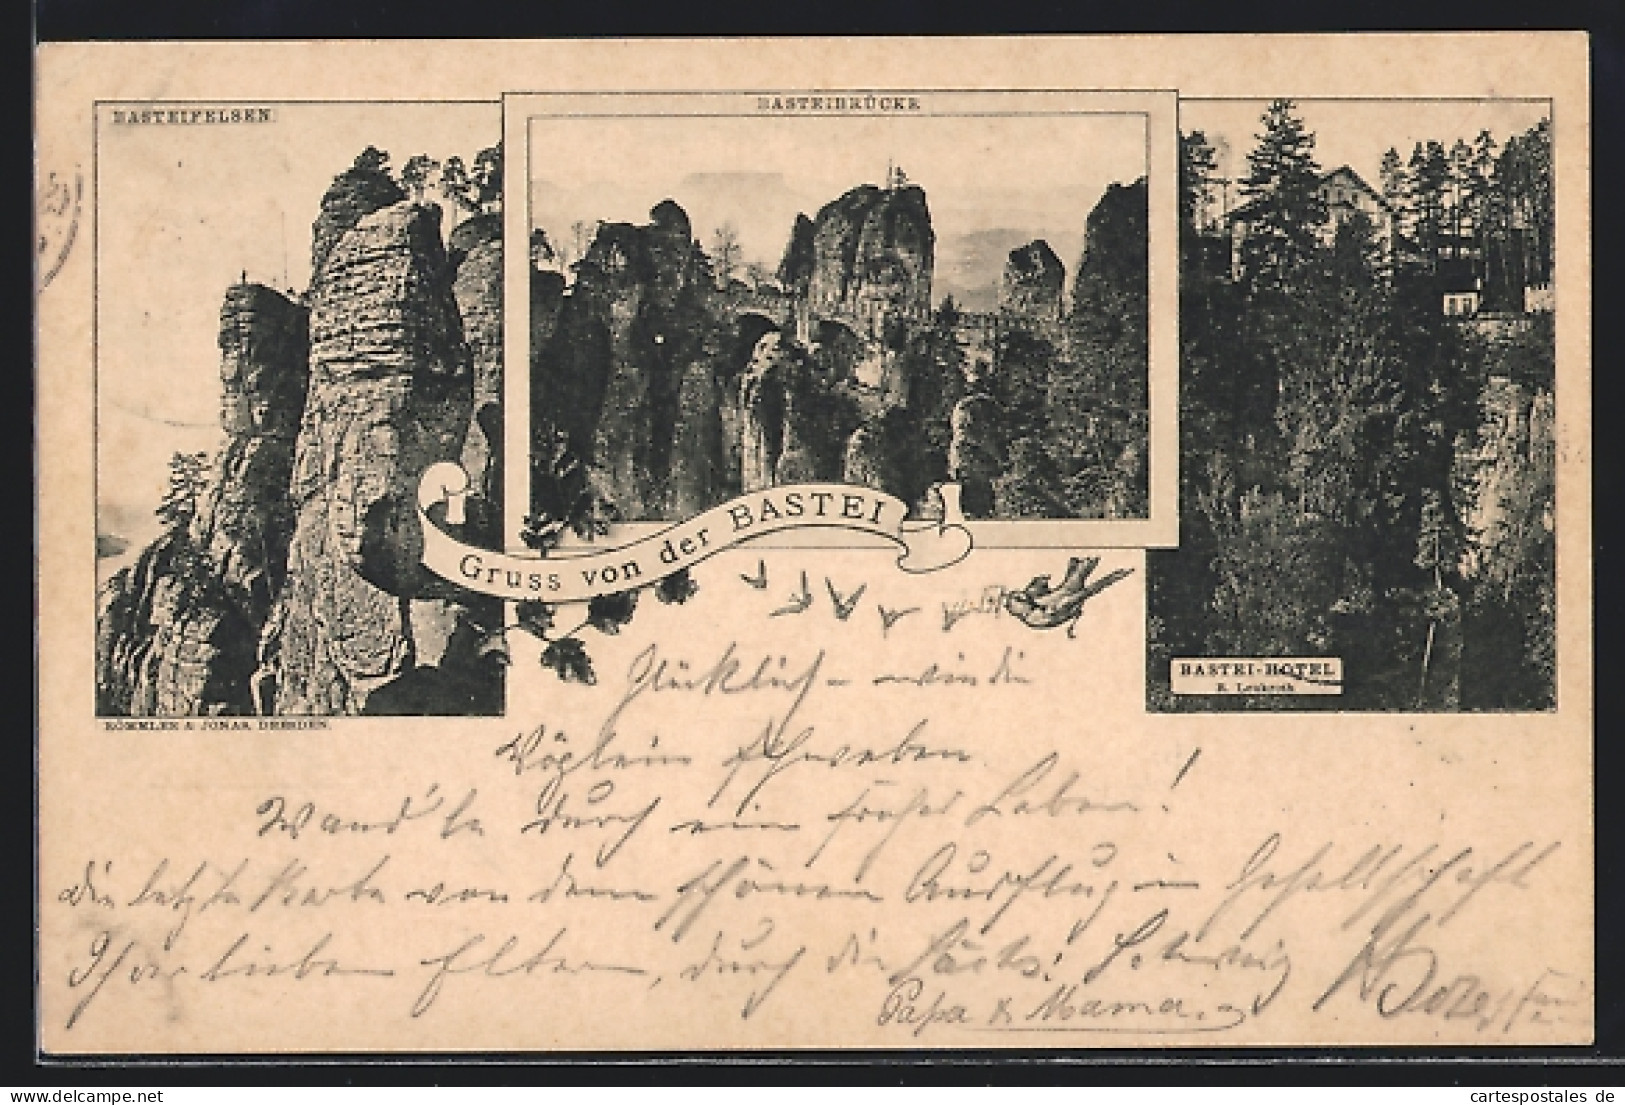 BASTEIFELSEN.
BASTEIBRÜCKE
Gruss von der BASTEI
BASTEI-HOTEL
RÖMMLER & JONAS, DRESDEN.
Glücklich – wie die
Vöglein schweben
Wand'le durch ein froher Leben!
Die letzte Karte von dem schönen Ausflug in Gesellschaft
Ihrer lieben Eltern, durch die Sächs. Schweiz
Papa & Mama.
cartespostales.de